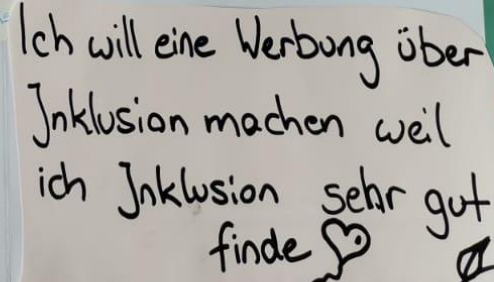 Ich will eine Werbung über
Inklusion machen weil
ich Inklusion sehr gut
finde